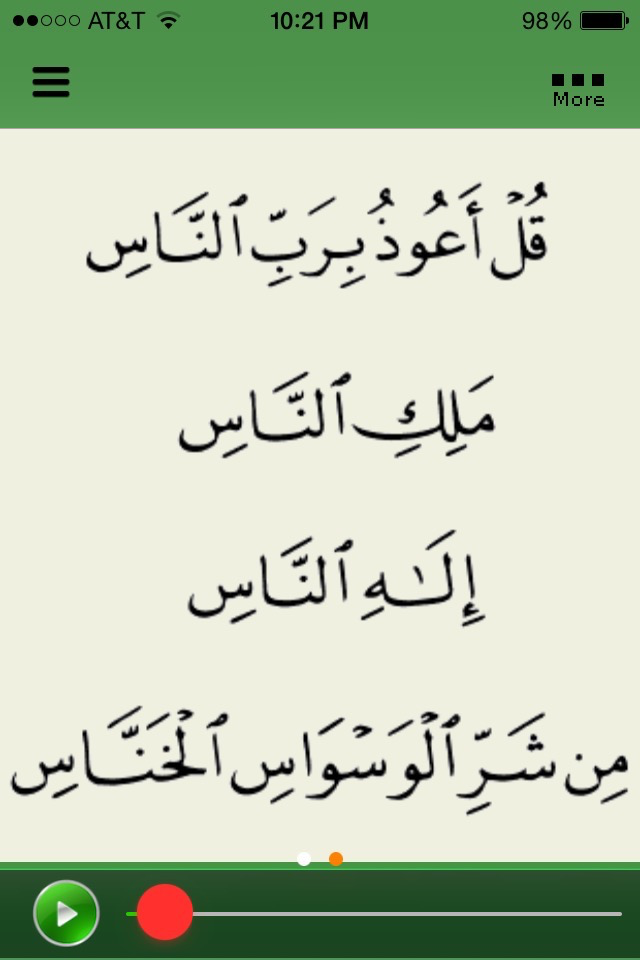 AT&T 10:21 PM 98%
More
قُلۡ أَعُوذُ بِرَبِّ ٱلنَّاسِ
مَلِكِ ٱلنَّاسِ
إِلَـٰهِ ٱلنَّاسِ
مِن شَرِّ ٱلۡوَسۡوَاسِ ٱلۡخَنَّاسِ